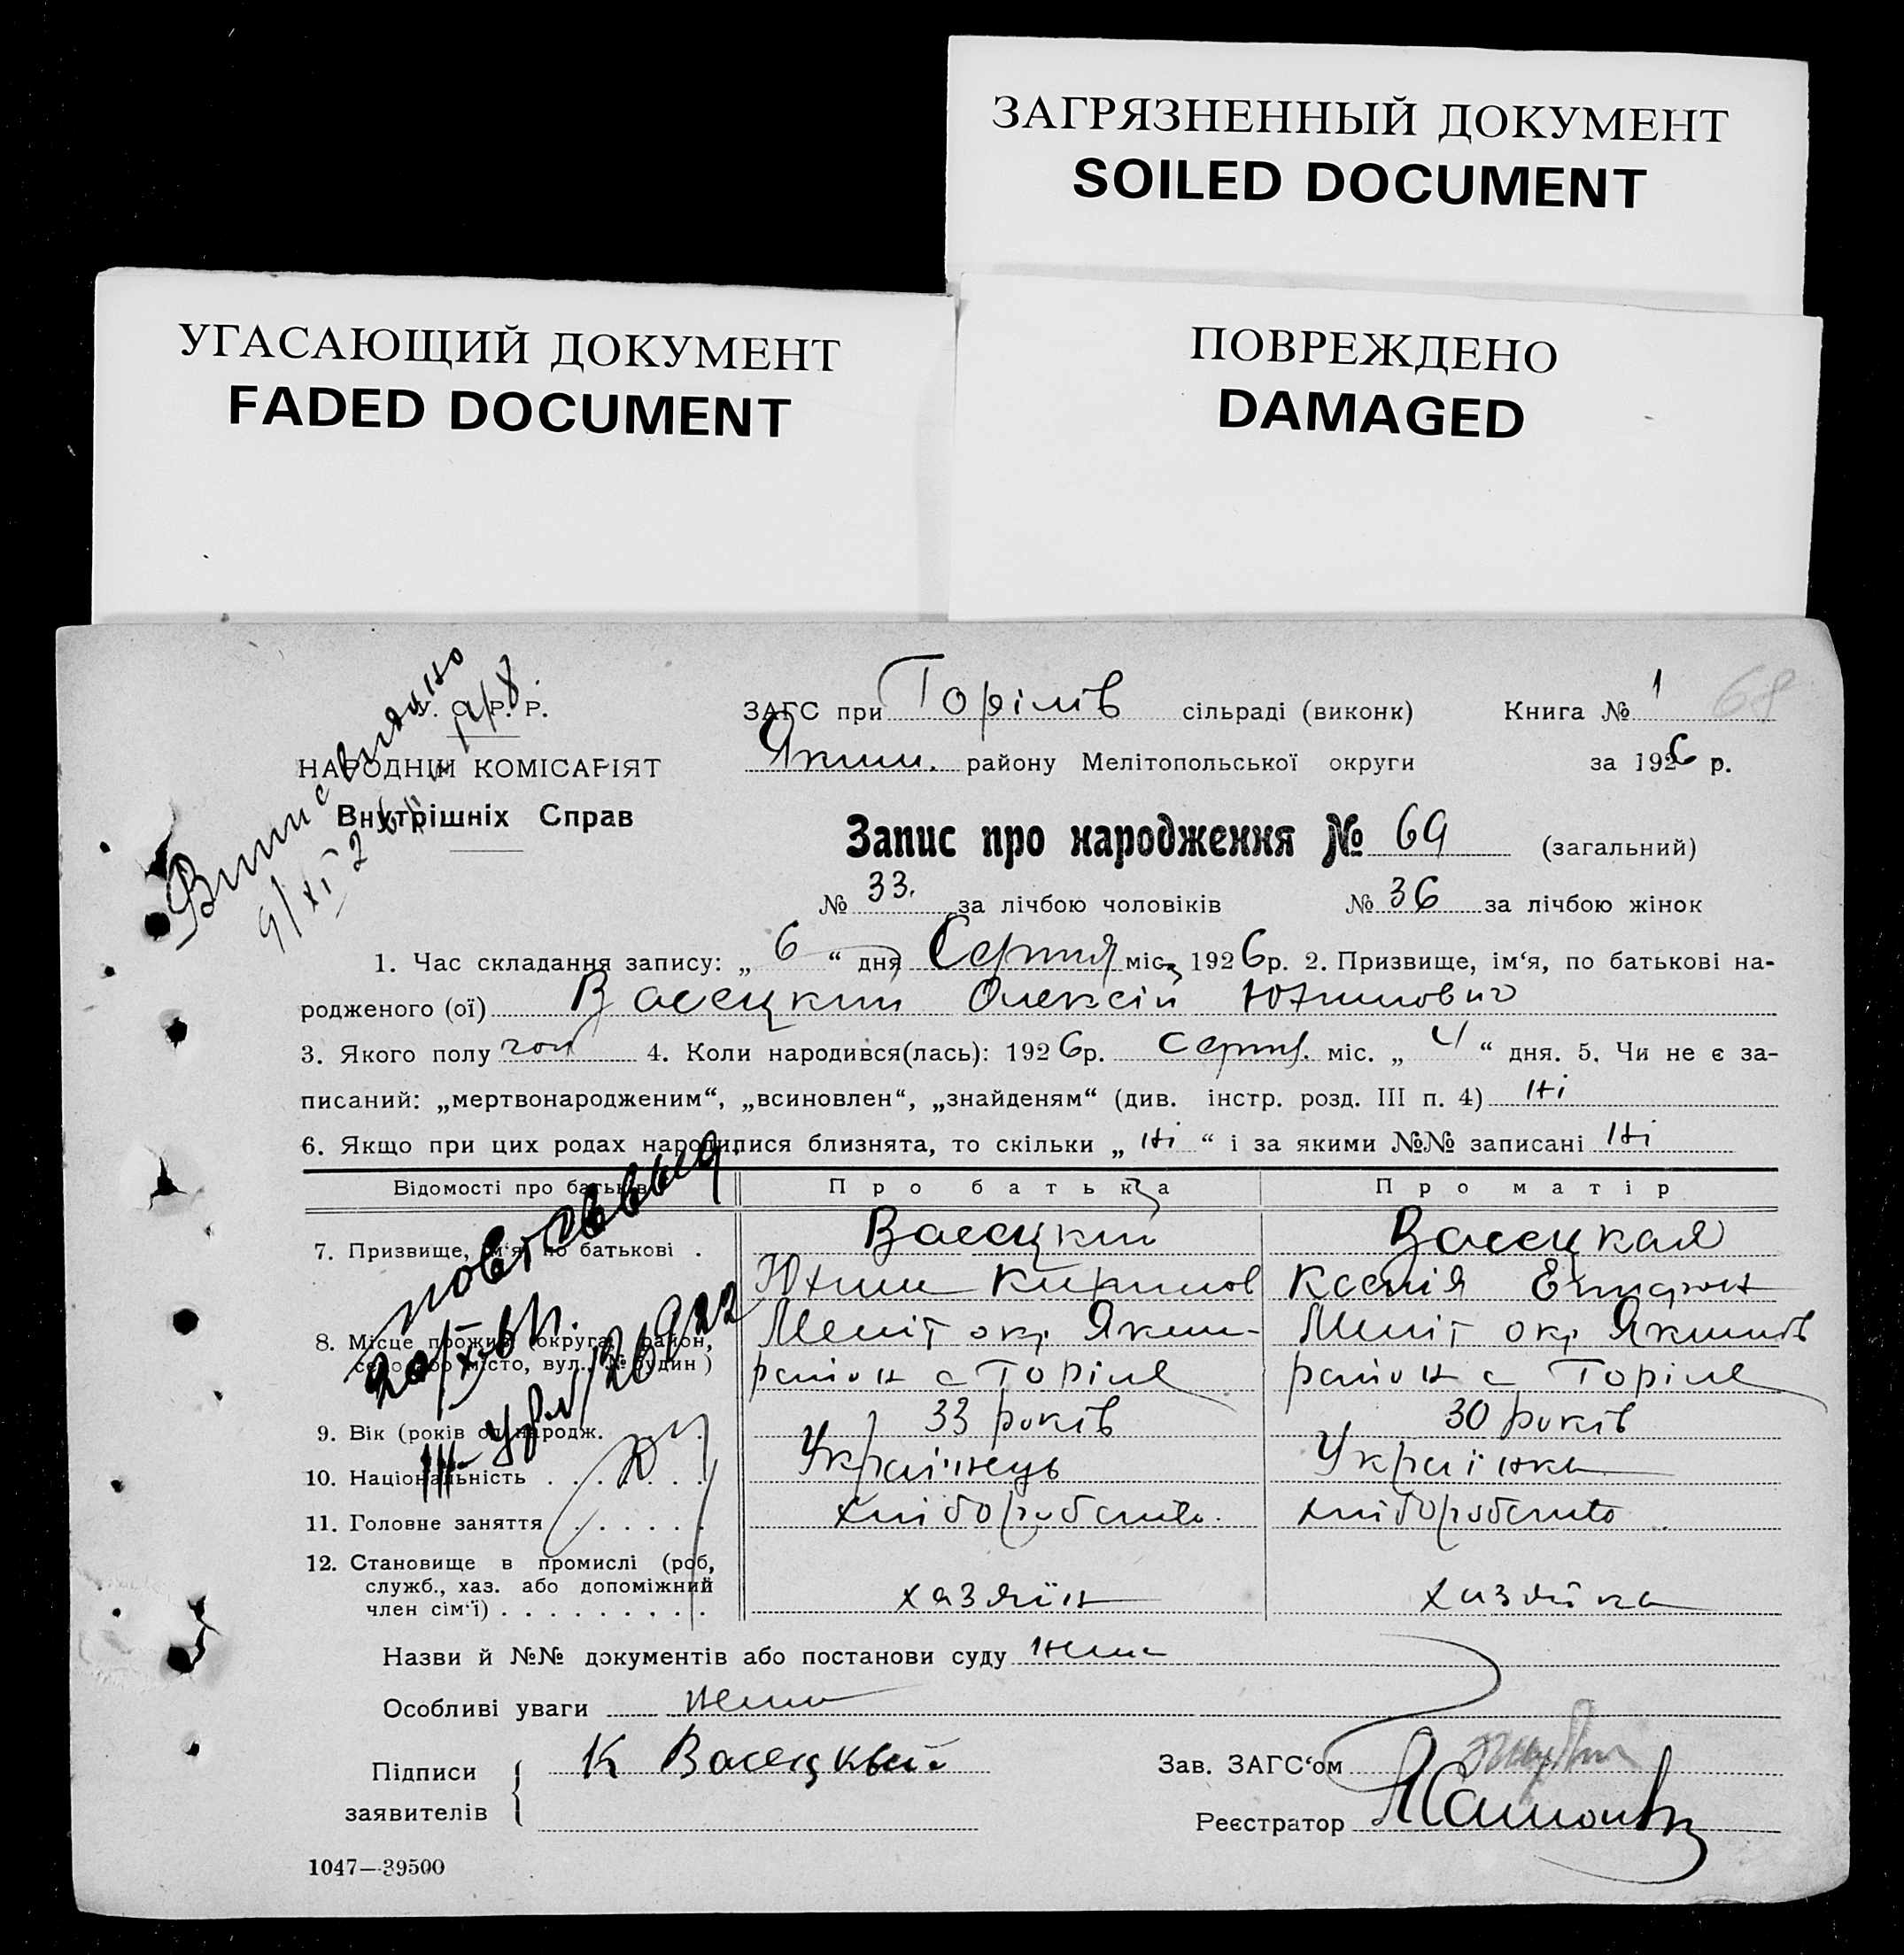 ЗАГРЯЗНЕННЫЙ ДОКУМЕНТ
SOILED DOCUMENT
УГАСАЮЩИЙ ДОКУМЕНТ
FADED DOCUMENT
ПОВРЕЖДЕНО
DAMAGED
С. Р. Р.
НАРОДНІЙ КОМІСАРІЯТ
Внутрішніх Справ
ЗАГС при Горілів сільраді (виконк) Книга № 1 68
Яким. району Мелітопольської округи за 1926 р.
Запис про народження № 69 (загальний)
№ 33. за лічбою чоловіків № 36 за лічбою жінок
1. Час складання запису: „ 6 “ дня Серпня міс, 1926 р. 2. Призвище, ім‘я, по батькові на-
родженого (ої) Васецкий Олексій Юхимович
3. Якого полу чол 4. Коли народився(лась): 1926 р. серпн. міс. „ 4 “ дня. 5. Чи не є за-
писаний: „мертвонародженим“, „всиновлен“, „знайденям“ (див. інстр. розд. III п. 4) Ні
6. Якщо при цих родах народилися близнята, то скільки „ Ні “ і за якими №№ записані Ні
Відомості про батьків Про батька Про матір
7. Призвище, ім‘я, по батькові . Васецкий Васецкая
Юхим Ксенія
8. Місце прожив. (округа, район, Меліт окр Яким- Меліт окр Якимів
село або місто, вул., № будин ) район с Горіле район с Горіле
9. Вік (років од народж. 33 років 30 років
10. Національність . . . . . . Українець Українка
11. Головне заняття . . . . . . хліборобство. хліборобство
12. Становище в промислі (роб,
служб., хаз. або допоміжний
член сім‘ї) . . . . . . . . . хазяїн хазяйка
Назви й №№ документів або постанови суду нема
Особливі уваги нема
Підписи К Васецкый Зав. ЗАГС‘ом
заявителів Реєстратор
1047—39500